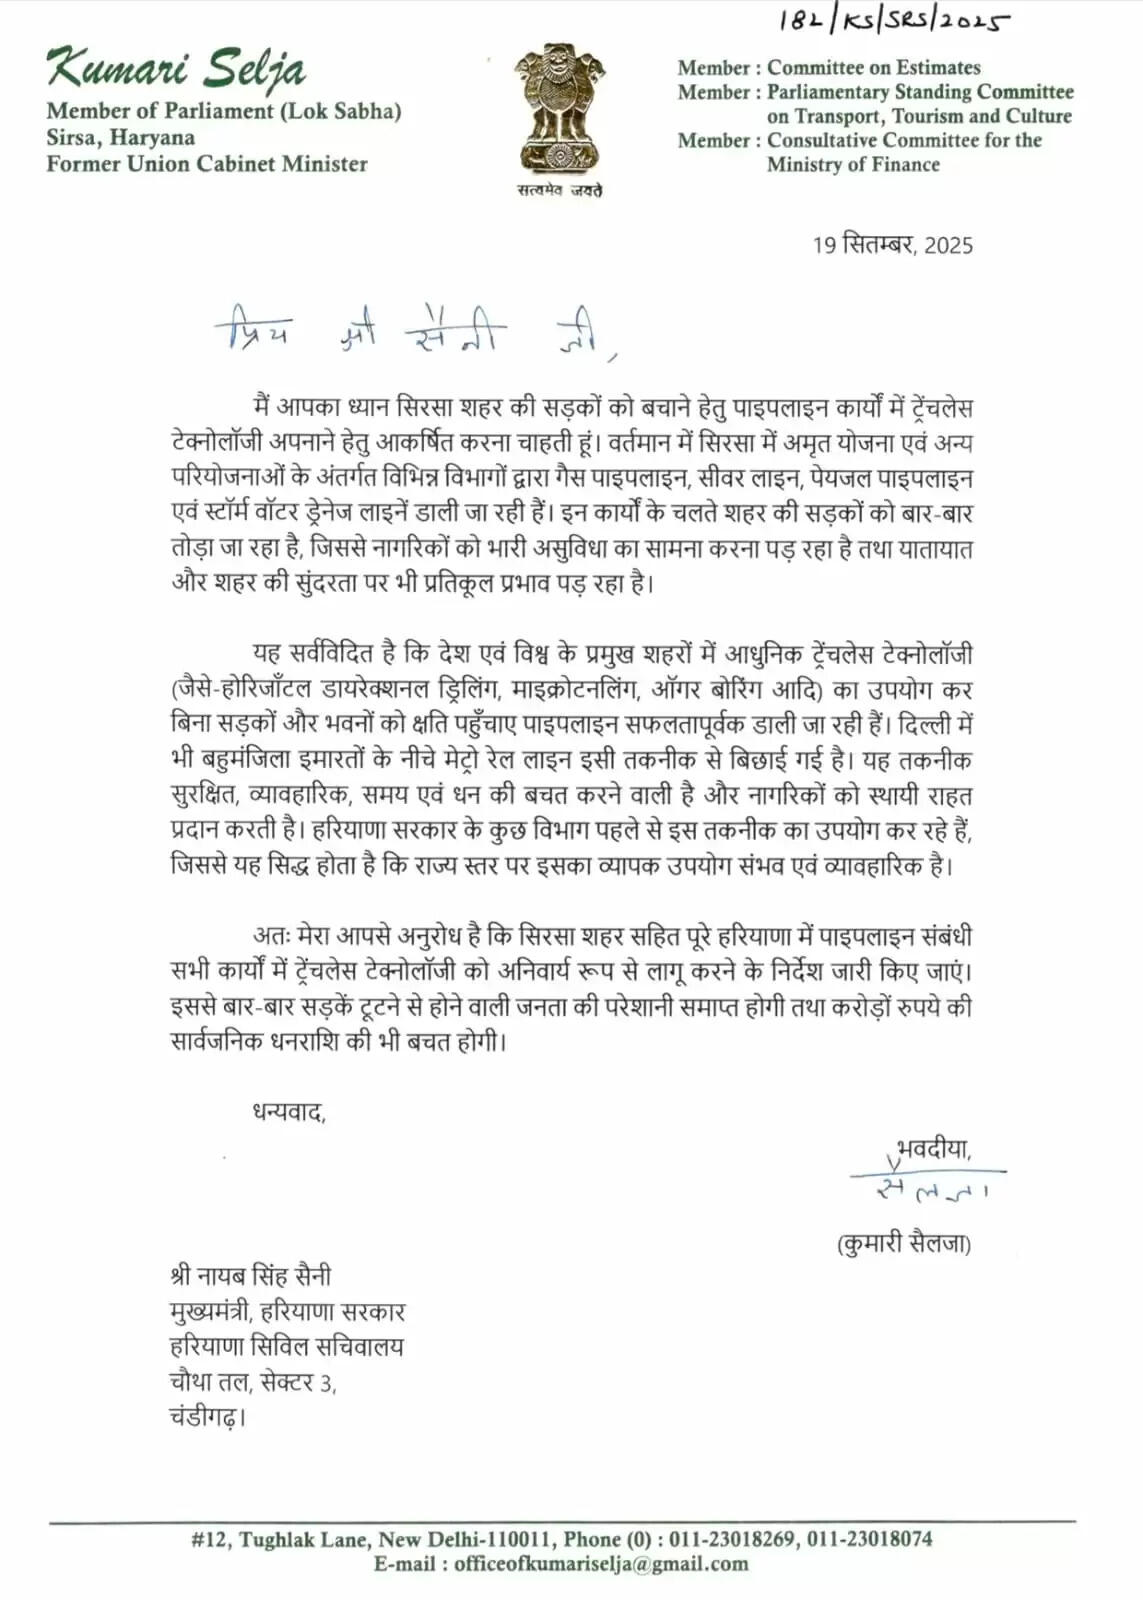 182/KS/SRS/2025
Kumari Selja
Member of Parliament (Lok Sabha)
Sirsa, Haryana
Former Union Cabinet Minister
सत्यमेव जयते
Member : Committee on Estimates
Member : Parliamentary Standing Committee
on Transport, Tourism and Culture
Member : Consultative Committee for the
Ministry of Finance
19 सितम्बर, 2025
प्रिय श्री सैनी जी,
मैं आपका ध्यान सिरसा शहर की सड़कों को बचाने हेतु पाइपलाइन कार्यों में ट्रेंचलेस
टेक्नोलॉजी अपनाने हेतु आकर्षित करना चाहती हूं। वर्तमान में सिरसा में अमृत योजना एवं अन्य
परियोजनाओं के अंतर्गत विभिन्न विभागों द्वारा गैस पाइपलाइन, सीवर लाइन, पेयजल पाइपलाइन
एवं स्टॉर्म वॉटर ड्रेनेज लाइनें डाली जा रही हैं। इन कार्यों के चलते शहर की सड़कों को बार-बार
तोड़ा जा रहा है, जिससे नागरिकों को भारी असुविधा का सामना करना पड़ रहा है तथा यातायात
और शहर की सुंदरता पर भी प्रतिकूल प्रभाव पड़ रहा है।
यह सर्वविदित है कि देश एवं विश्व के प्रमुख शहरों में आधुनिक ट्रेंचलेस टेक्नोलॉजी
(जैसे-होरिजाँटल डायरेक्शनल ड्रिलिंग, माइक्रोटनलिंग, ऑगर बोरिंग आदि) का उपयोग कर
बिना सड़कों और भवनों को क्षति पहुँचाए पाइपलाइन सफलतापूर्वक डाली जा रही हैं। दिल्ली में
भी बहुमंजिला इमारतों के नीचे मेट्रो रेल लाइन इसी तकनीक से बिछाई गई है। यह तकनीक
सुरक्षित, व्यावहारिक, समय एवं धन की बचत करने वाली है और नागरिकों को स्थायी राहत
प्रदान करती है। हरियाणा सरकार के कुछ विभाग पहले से इस तकनीक का उपयोग कर रहे हैं,
जिससे यह सिद्ध होता है कि राज्य स्तर पर इसका व्यापक उपयोग संभव एवं व्यावहारिक है।
अतः मेरा आपसे अनुरोध है कि सिरसा शहर सहित पूरे हरियाणा में पाइपलाइन संबंधी
सभी कार्यों में ट्रेंचलेस टेक्नोलॉजी को अनिवार्य रूप से लागू करने के निर्देश जारी किए जाएं।
इससे बार-बार सड़कें टूटने से होने वाली जनता की परेशानी समाप्त होगी तथा करोड़ों रुपये की
सार्वजनिक धनराशि की भी बचत होगी।
धन्यवाद,
भवदीया,
सैलजा
(कुमारी सैलजा)
श्री नायब सिंह सैनी
मुख्यमंत्री, हरियाणा सरकार
हरियाणा सिविल सचिवालय
चौथा तल, सेक्टर 3,
चंडीगढ़।
#12, Tughlak Lane, New Delhi-110011, Phone (0) : 011-23018269, 011-23018074
E-mail : officeofkumariselja@gmail.com